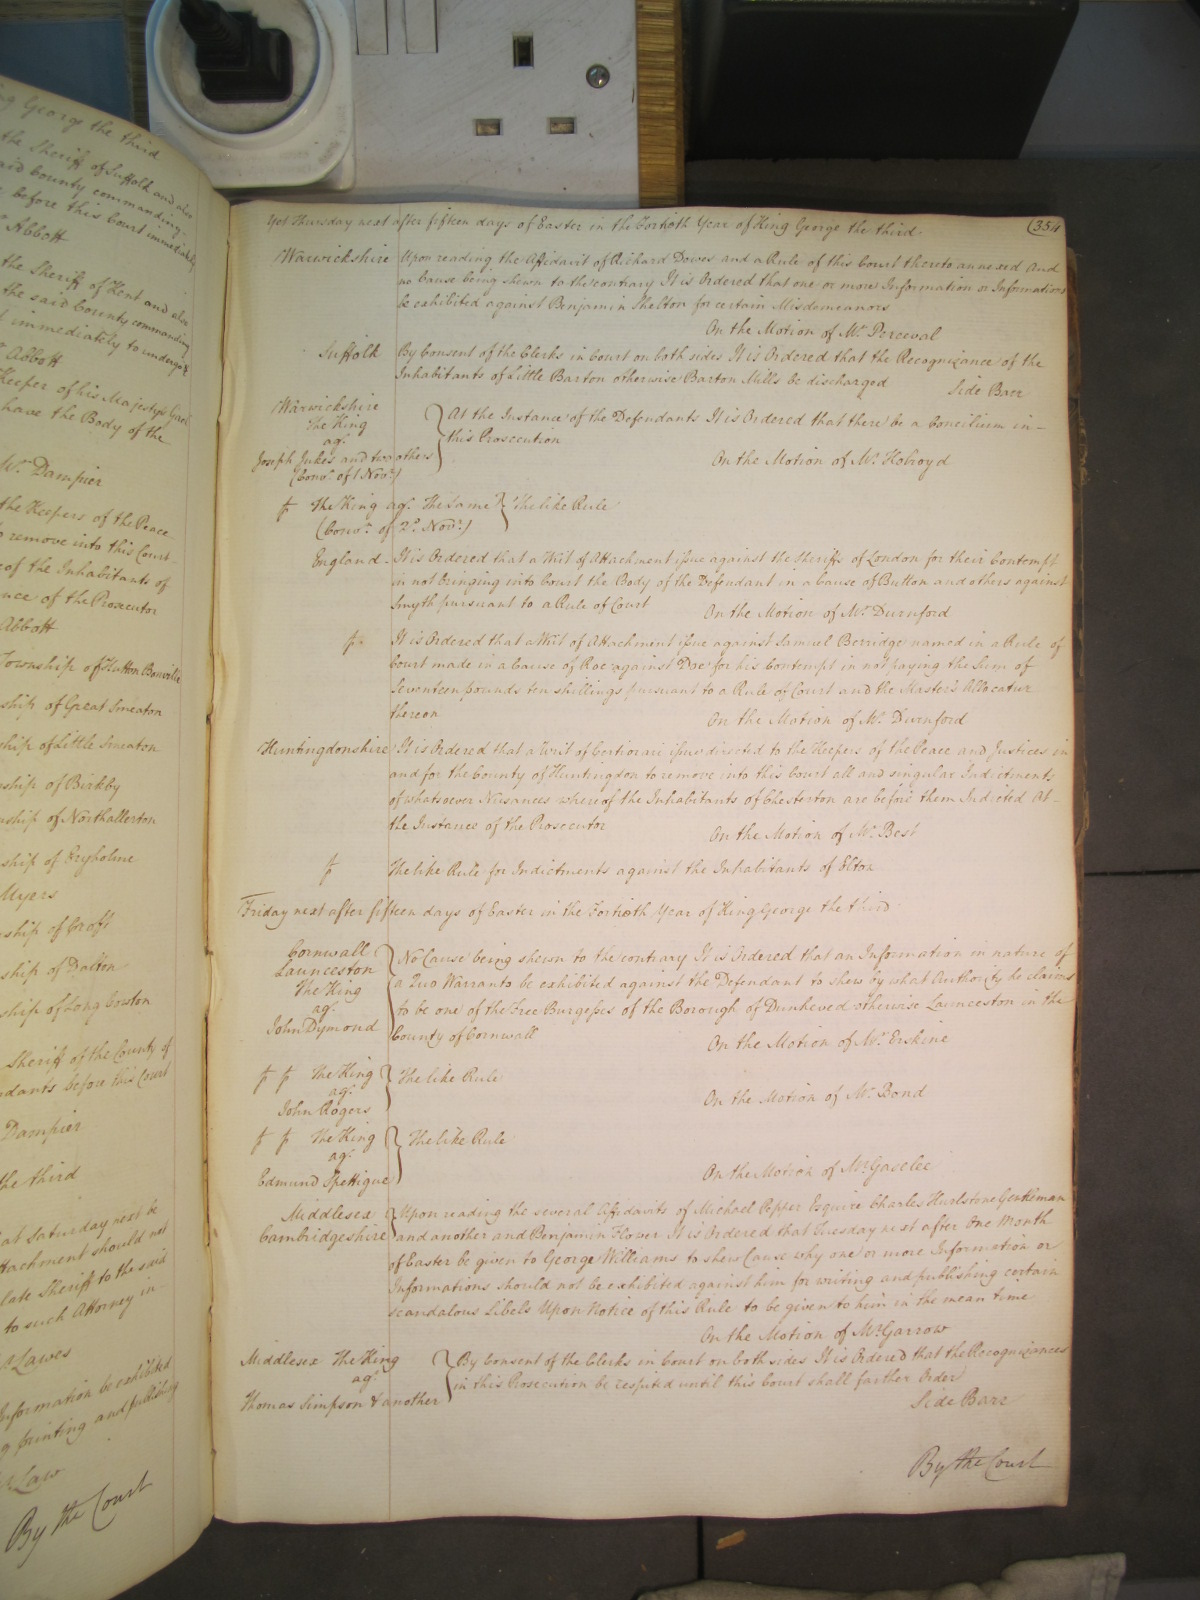 ng George the third
the Sheriff of Suffolk and also
said County commanding
before this Court immediately
Abbott
the Sheriff of Kent and also
the said County commanding
immediately to undergo &
Abbott
Keeper of his Majestys Gaol
have the Body of the
Mr. Dampier
the Keepers of the Peace
to remove into this Court
of the Inhabitants of
nce of the Prosecutor
Abbott
Township of Hutton Bonville
ship of Great Smeaton
ship of Little Smeaton
ship of Birkby
ship of Northallerton
ship of Eryholme
Myers
ship of Croft
ship of Dalton
ship of Long Cowton
Sheriff of the County of
ndants before this Court
Dampier
the third
at Saturday next be
ttachment should not
late Sheriff to the said
to such Attorney in
Lawes
Information be exhibited
g printing and publishing
Law
By the Court
Yet Thursday next after fifteen days of Easter in the Fortieth Year of King George the third
(354
Warwickshire Upon reading the Affidavit of Richard Dowes and a Rule of this Court thereto annexed And
no Cause being shewn to the contrary It is Ordered that one or more Information or Informations
be exhibited against Benjamin Shelton for certain Misdemeanors
On the Motion of Mr. Perceval
Suffolk By Consent of the Clerks in Court on both sides It is Ordered that the Recognizance of the
Inhabitants of Little Barton otherwise Barton Mills be discharged Side Barr
Warwickshire
The King
agt.
Joseph Jukes and two others
(Convn. of 1 Novr.)
At the Instance of the Defendants It is Ordered that there be a Concilium in
this Prosecution
On the Motion of Mr. Holroyd
The King agt. The Same The like Rule
(Convn. of 2d. Novr.)
England It is Ordered that a Writ of Attachment issue against the Sheriffs of London for their Contempt
in not bringing into Court the Body of the Defendant in a Cause of Button and others against
Smyth pursuant to a Rule of Court On the Motion of Mr. Durnford
It is Ordered that a Writ of Attachment issue against Samuel Berridge named in a Rule of
Court made in a Cause of Roe against Doe for his Contempt in not paying the Sum of
Seventeen pounds ten shillings pursuant to a Rule of Court and the Master's Allocatur
thereon On the Motion of Mr. Durnford
Huntingdonshire It is Ordered that a Writ of Certiorari issue directed to the Keepers of the Peace and Justices in
and for the County of Huntingdon to remove into this Court all and singular Indictments
of whatsoever Nusances whereof the Inhabitants of Chesterton are before them Indicted At
the Instance of the Prosecutor On the Motion of Mr. Best
The like Rule for Indictments against the Inhabitants of Elton
Friday next after fifteen days of Easter in the Fortieth Year of King George the third
Cornwall
Launceston
The King
agt.
John Dymond
No Cause being shewn to the contrary It is Ordered that an Information in nature of
a Quo Warranto be exhibited against the Defendant to shew by what Authority he claims
to be one of the Free Burgesses of the Borough of Dunheved otherwise Launceston in the
County of Cornwall On the Motion of Mr. Erskine
The King
agt.
John Rogers
The like Rule
On the Motion of Mr. Bond
The King
agt.
Edmund Spettigue
The like Rule
On the Motion of Mr. Gaselee
Middlesex
Cambridgeshire
Upon reading the several Affidavits of Michael Pepper Esquire Charles Hurlstone Gentleman
and another and Benjamin Flower It is Ordered that Tuesday next after One Month
of Easter be given to George Williams to shew Cause why one or more Information or
Informations should not be exhibited against him for writing and publishing certain
scandalous Libels Upon Notice of this Rule to be given to him in the mean time
On the Motion of Mr. Garrow
Middlesex The King
agt.
Thomas Simpson & another
By Consent of the Clerks in Court on both sides It is Ordered that the Recognizances
in this Prosecution be respited until this Court shall farther Order
Side Barr
By the Court